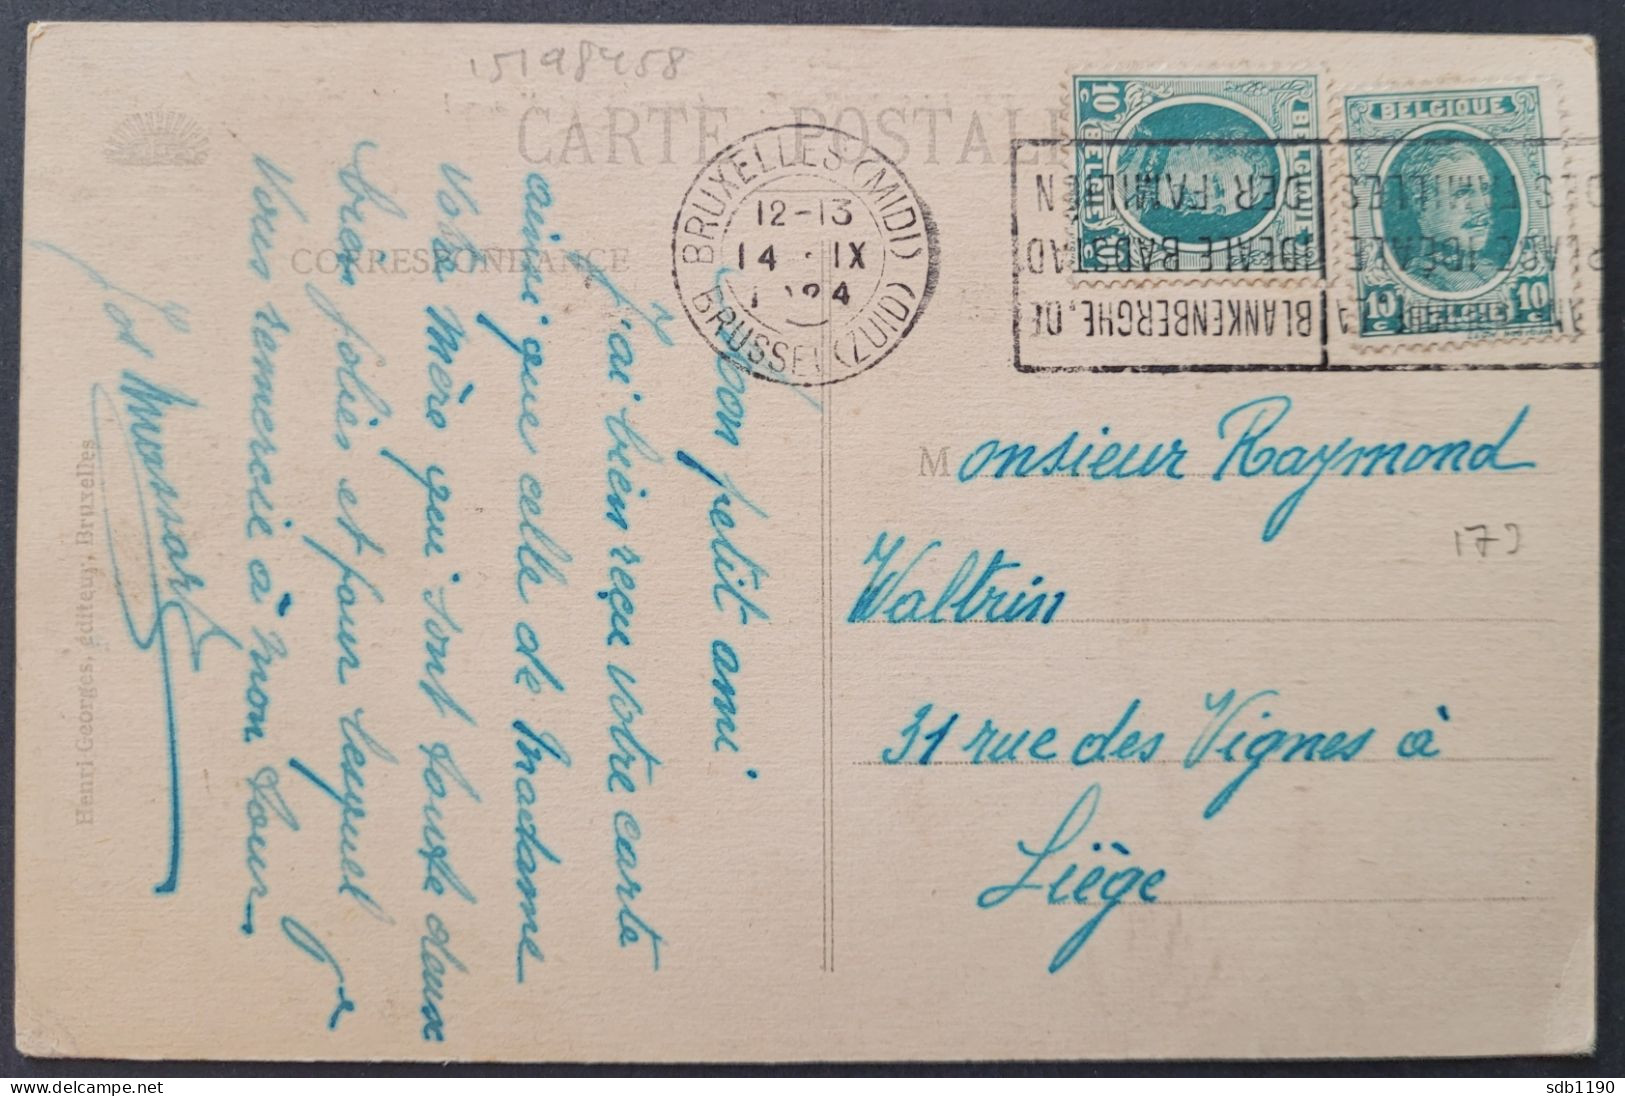 15198458
CARTE POSTALE
CORRESPONDANCE
BRUXELLES (MIDI)
12-13
14 IX
BRUSSEL (ZUID)
BELGIQUE
10 c
BELGIË
10 c
BELGIQUE
10 c
BELGIË
10 c
BLANKENBERGHE, DE
IDEALE BADSTAD
DER FAMILIEN
PLAGE IDÉALE
DES FAMILLES
Mon petit ami
J'ai bien reçu votre carte
ainsi que celle de Madame
Votre Mère qui sont toutes deux
bien jolies et pour lesquel
Vous remercie à mon tour
Jos Massart
Monsieur Raymond
Waltrin
31 rue des Vignes à
Liège
179
Henri Georges, éditeur, Bruxelles
sdb1190